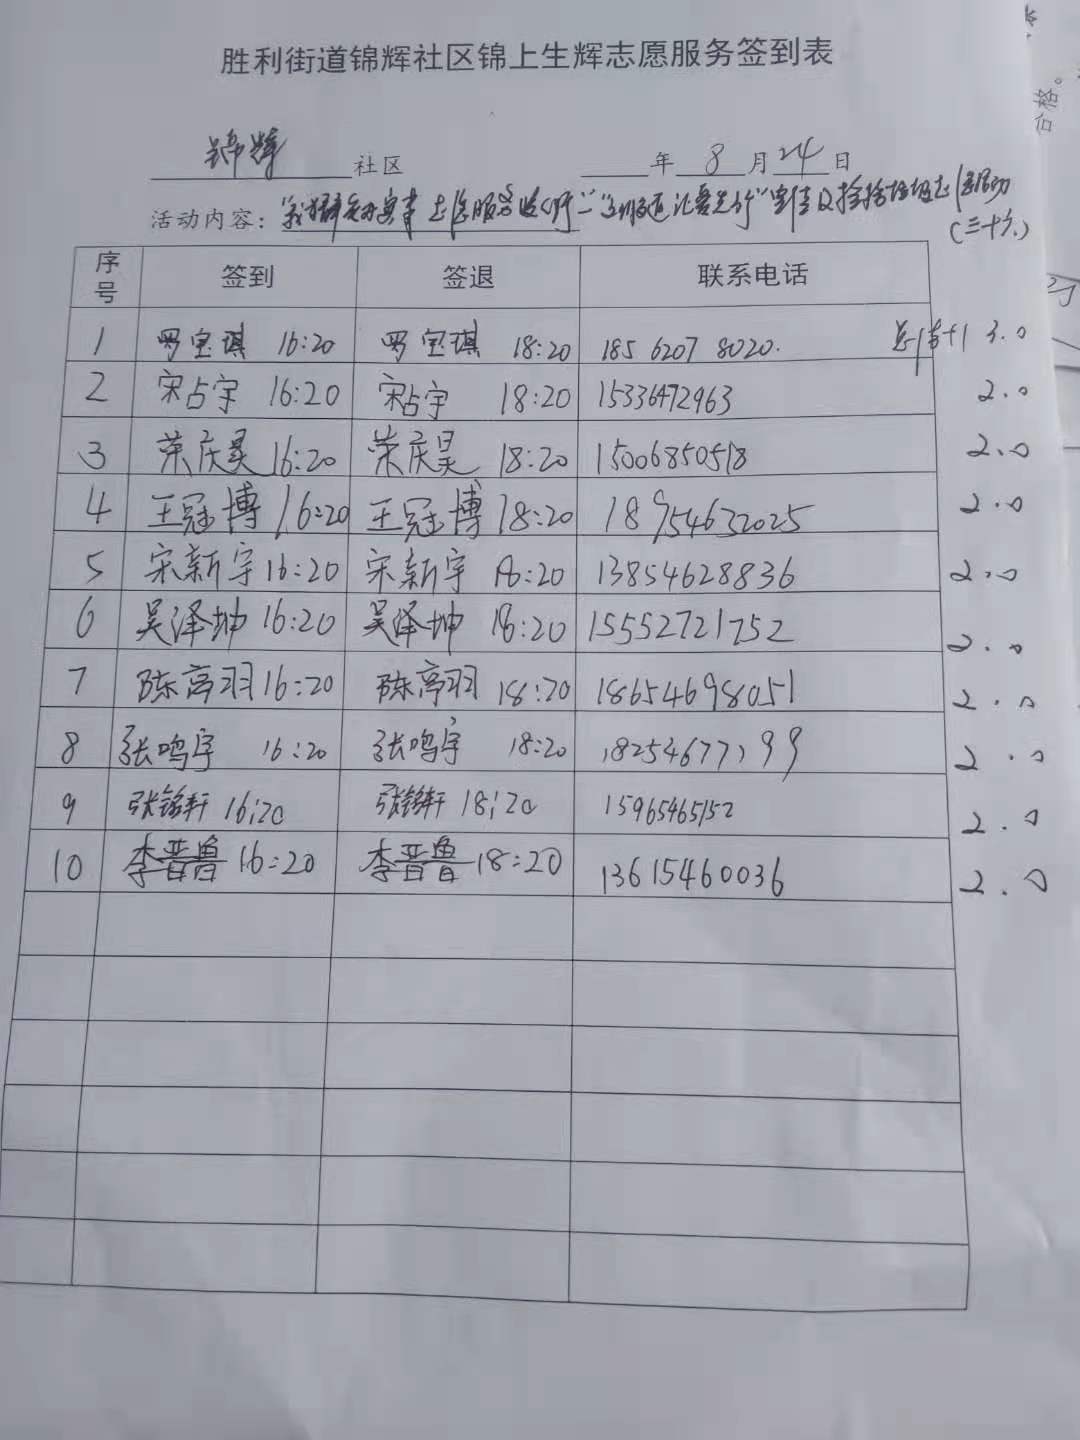 胜利街道锦辉社区锦上生辉志愿服务签到表
锦辉 社区 年 8 月 24 日
活动内容："我为群众办实事 志愿服务 "宣传及捡拾垃圾志愿活动
(三十六)
序号 签到 签退 联系电话
1 罗宝琪 16:20 罗宝琪 18:20 185 6207 8020. +1 3.0
2 宋占宇 16:20 宋占宇 18:20 15336472963 2.0
3 荣庆昊 16:20 荣庆昊 18:20 15006850518 2.0
4 王冠博 16:20 王冠博 18:20 18954632025 2.0
5 宋新宇 16:20 宋新宇 18:20 13854628836 2.0
6 吴泽坤 16:20 吴泽坤 18:20 15552721752 2.0
7 陈高羽 16:20 陈高羽 18:20 18654698051 2.0
8 张鸣宇 16:20 张鸣宇 18:20 18254677199 2.0
9 张铭轩 16:20 张铭轩 18:20 15965465152 2.0
10 李晋鲁 16:20 李晋鲁 18:20 13615460036 2.0
合格。